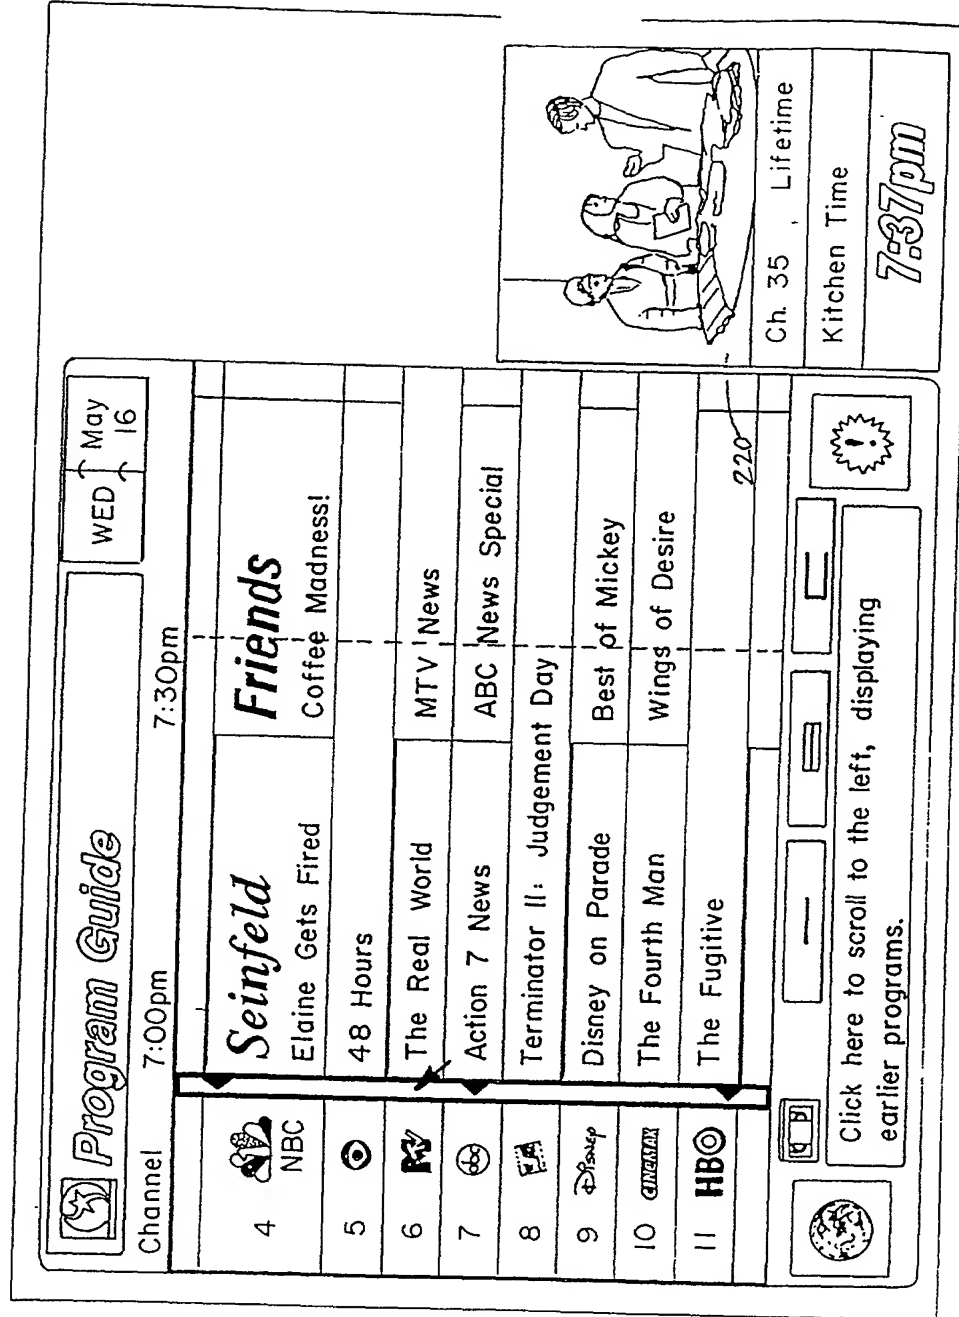 Program Guide
WED May 16
Channel 7:00pm 7:30pm
4 NBC Seinfeld Friends
Elaine Gets Fired Coffee Madness!
5 48 Hours
6 The Real World MTV News
7 abc Action 7 News ABC News Special
8 Terminator II: Judgement Day
9 Disney Disney on Parade Best of Mickey
10 CINEMAX The Fourth Man Wings of Desire
11 HBO The Fugitive
220
!
Click here to scroll to the left, displaying
earlier programs.
Ch. 35 Lifetime
Kitchen Time
7:37pm